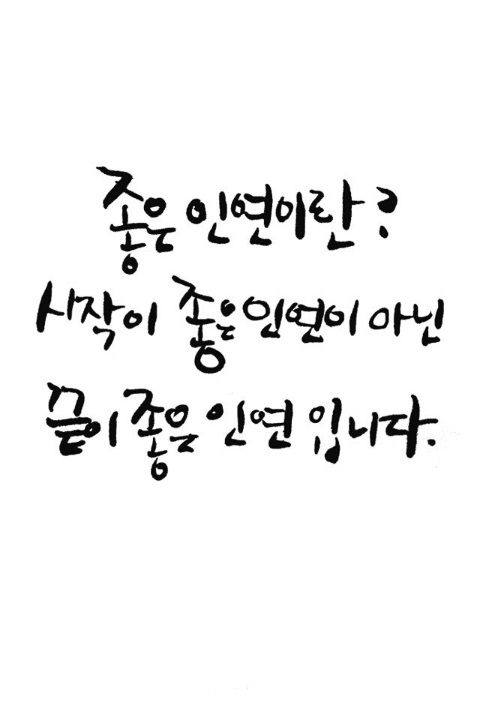 좋은 인연이란?
시작이 좋은 인연이 아닌
끝이 좋은 인연입니다.